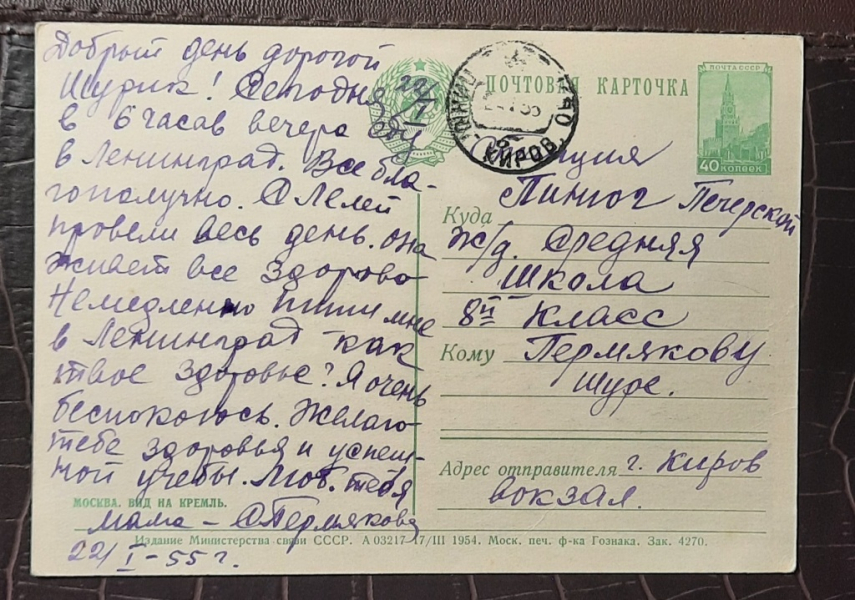 Добрый день дорогой
Шурик! Сегодня 22/I
в 6 часов вечера еду
в Ленинград. Все бла-
гополучно. С Лелей
провели весь день. она
живет все здорово
Немедленно пиши мне
в Ленинград как
твое здоровье? Я очень
беспокоюсь. Желаю
тебе здоровья и успеш-
ной учебы. Люб. тебя
МОСКВА. ВИД НА КРЕМЛЬ.
мама – С Пермякова
22/I-55 г.
ПОЧТОВАЯ КАРТОЧКА
ПОЧТА СССР
40 КОПЕЕК
КИРОВ
Пинюг Печерской
Куда ж/д. Средняя
Школа
8й класс
Кому Пермякову
Шуре.
Адрес отправителя г. Киров
вокзал.
Издание Министерства связи СССР. А 03217 17/III 1954. Моск. печ. ф-ка Гознака. Зак. 4270.